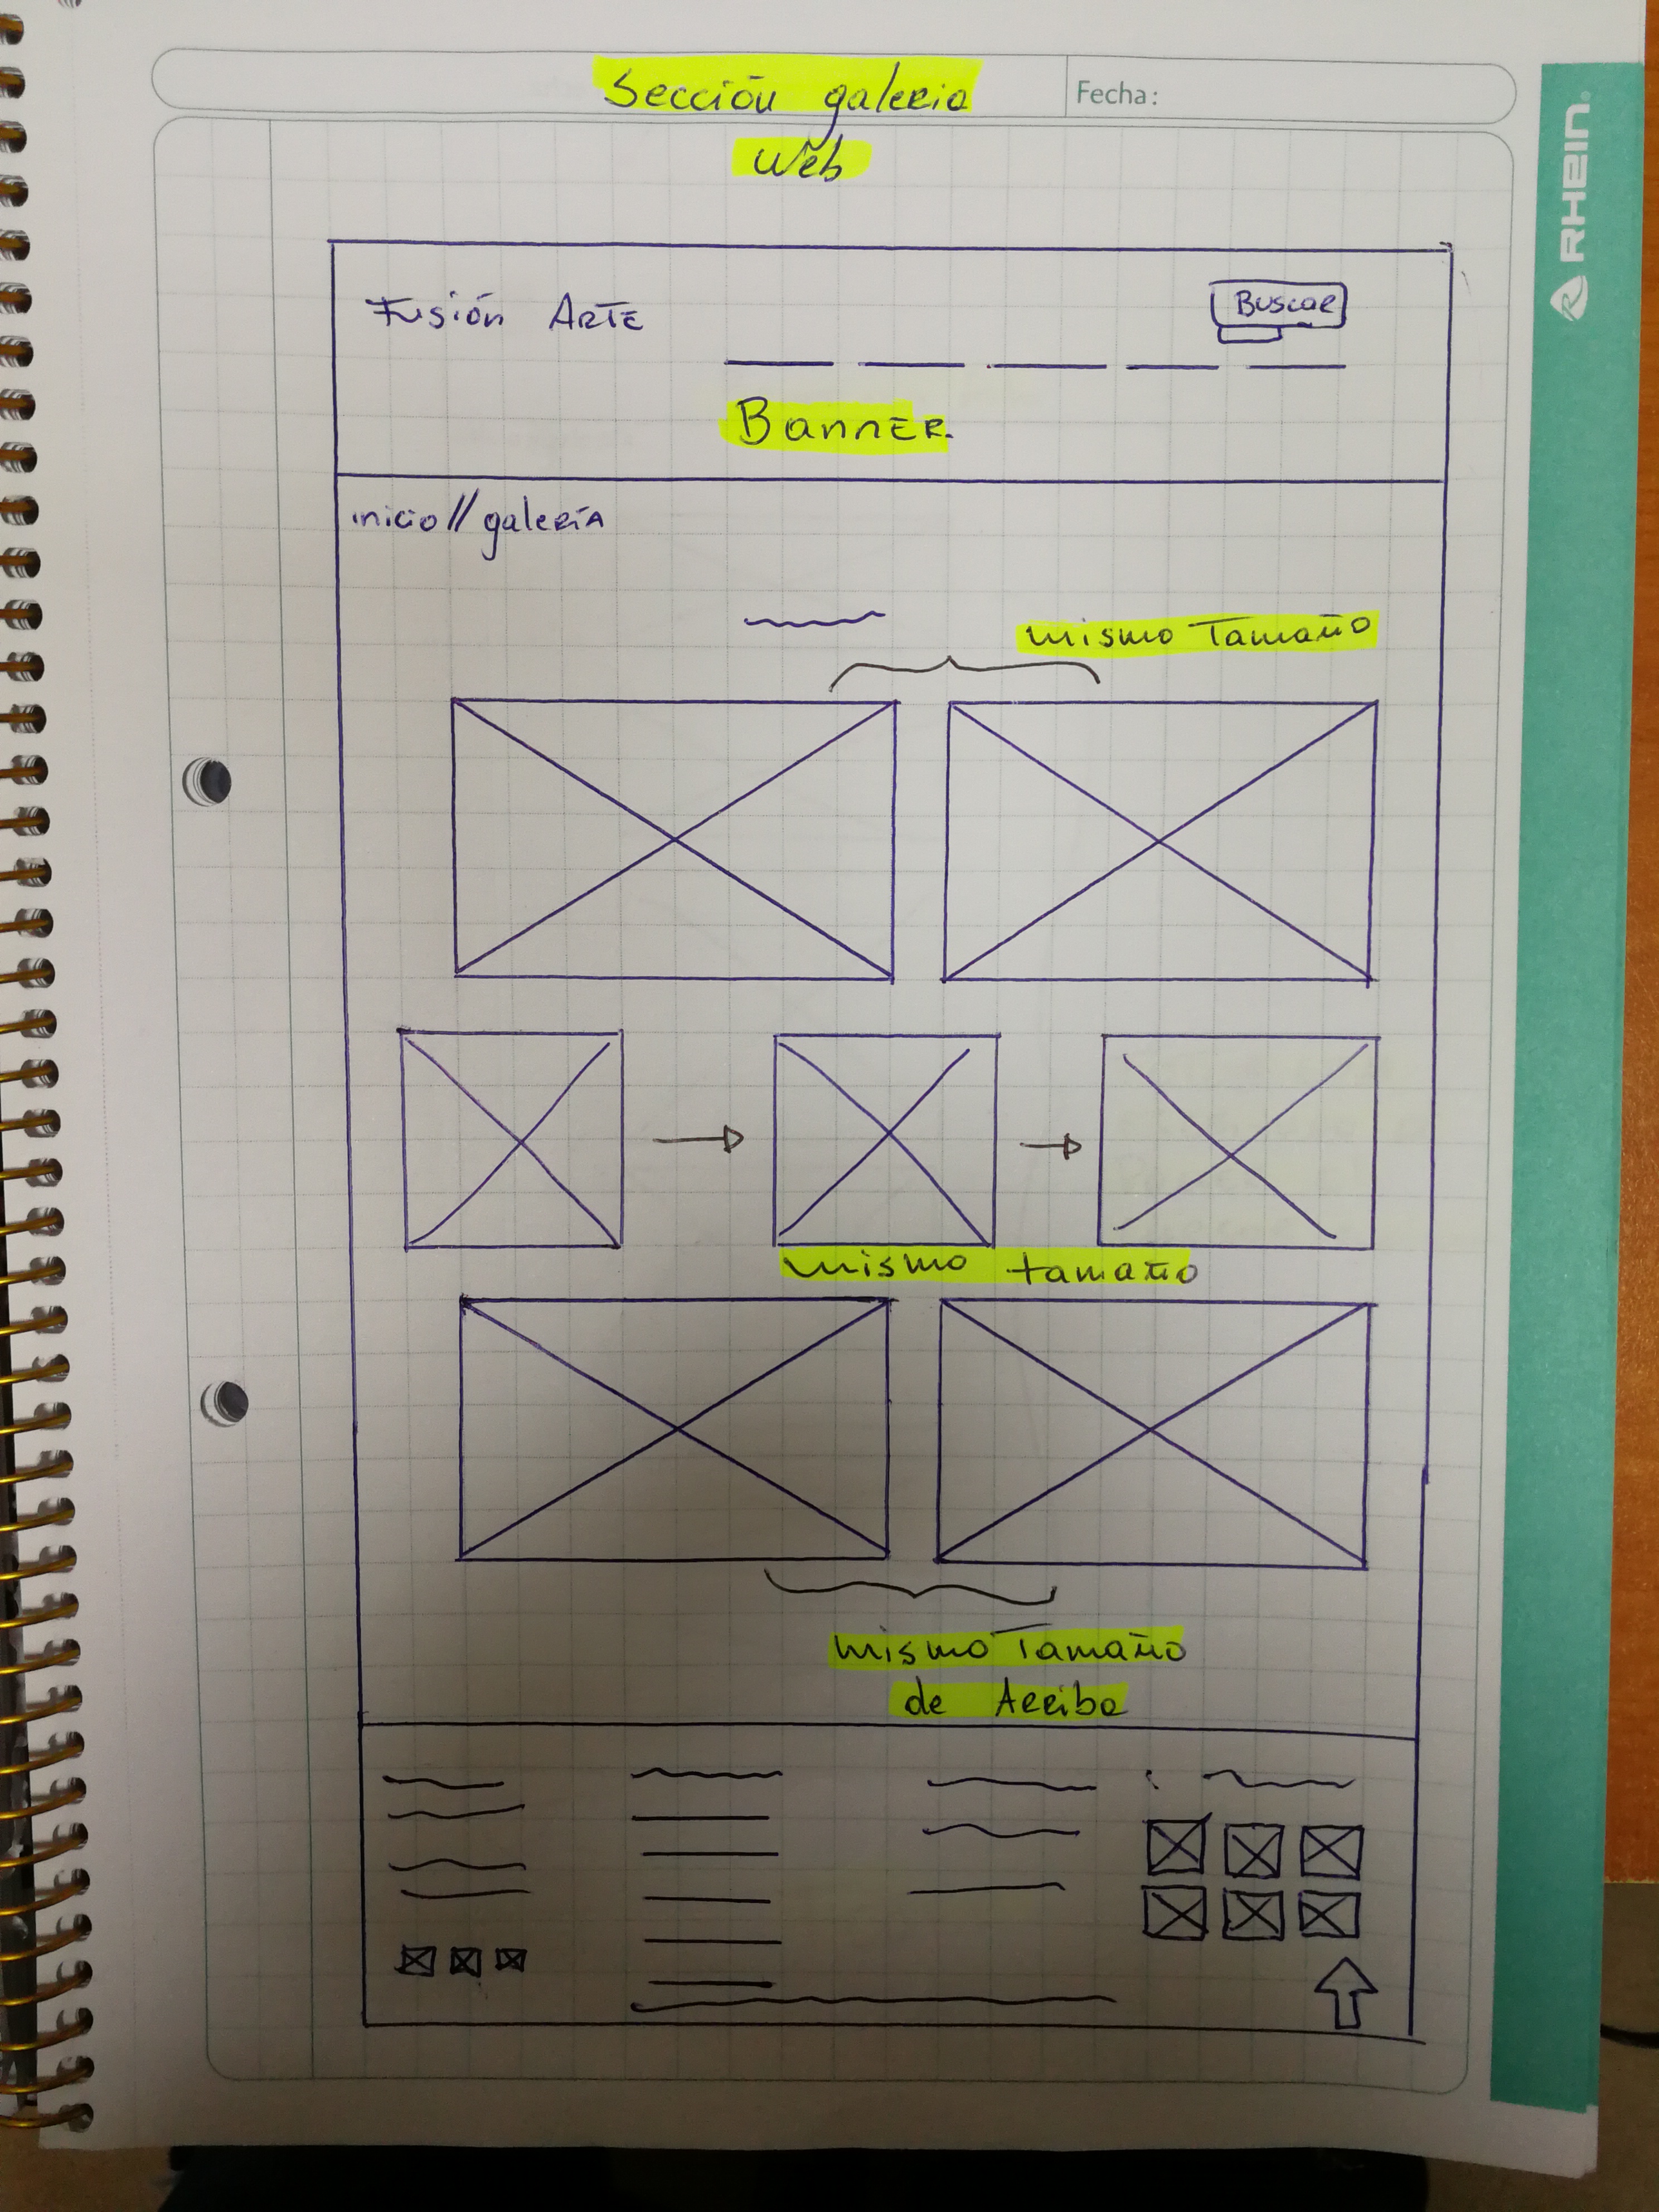 Sección galeria
Fecha:
Web
RHEIN
Fusión ARTE
Buscar
BannER.
inicio// galeRÍA
mismo Tamaño
mismo tamaño
mismo Tamaño
de Arriba